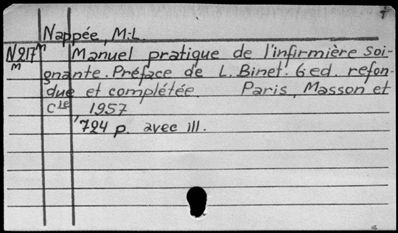 Nappée, M.-L.
N217m Manuel pratique de l'infirmière soi-
m gnante. Préface de L. Binet. 6 ed. refon-
due et complétée. Paris, Masson et
Cie 1957
724 p. avec ill.